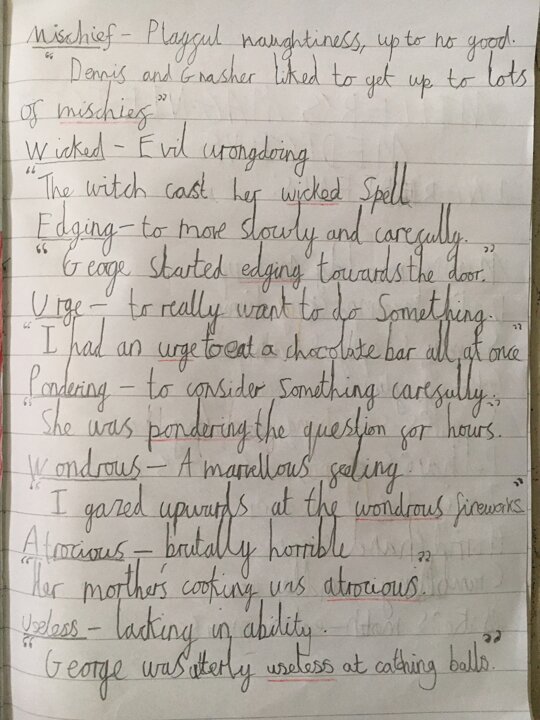 Mischief - Playful naughtiness, up to no good.
"Dennis and Gnasher liked to get up to lots
of mischief"
Wicked - Evil wrongdoing
"The witch cast her wicked Spell
Edging - to move slowly and carefully.
"George started edging towards the door."
Urge - to really want to do Something.
"I had an urge to eat a chocolate bar all at once"
Pondering - to consider Something carefully.
"She was pondering the question for hours."
Wondrous - A marvellous feeling
"I gazed upwards at the wondrous fireworks"
Atrocious - brutally horrible
"Her morther's cooking was atrocious."
Useless - lacking in ability.
"George was utterly useless at cathing balls."